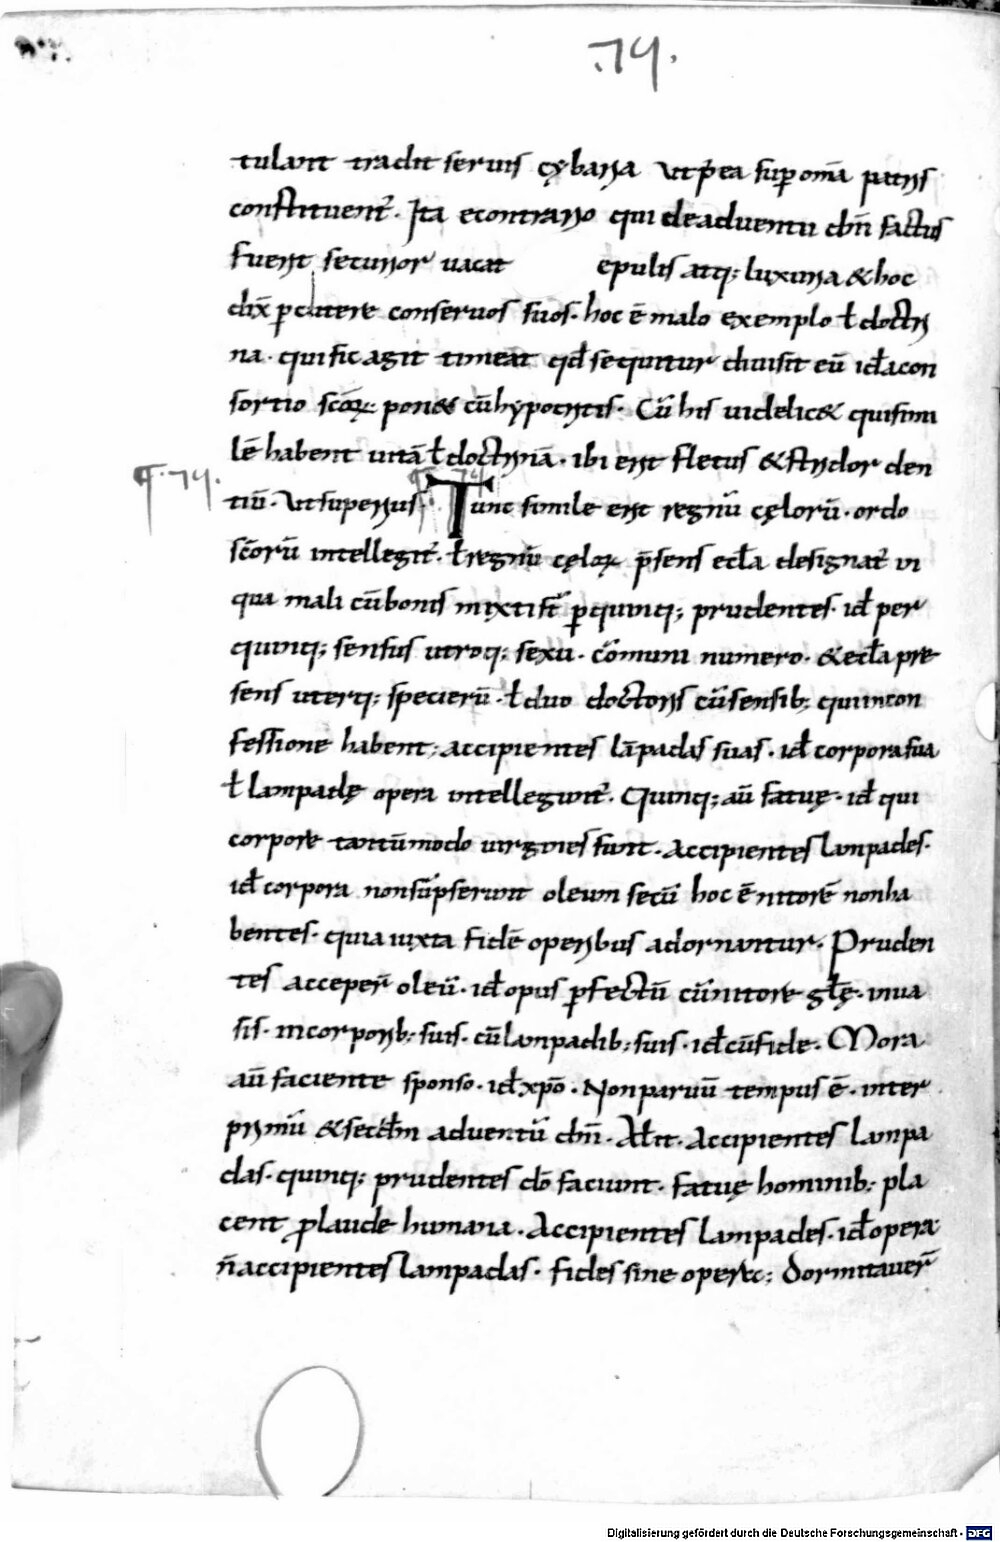 .74.
tulant tradit seruis cybaria ut p̄ ea sup om̄a patris
constituent᷑. Ita econtrario qui de aduentu dn̄i factus
fuerit securior uacat epulis atq; luxuria & hoc
dix̄ p̄cutere conseruos suos. hoc ē malo exemplo ł doctri
na. qui sic agit timeat qđ sequitur diuisit eū idł a con
sortio sc̄oꝝ pon& cū hypocritis. Cū his uidelic& qui simi
lē habent uitā ł doctrinā. ibi erit fletus & stridor den
¶.74.
tiū. Ut superius. Tunc simile erit regnū cęlorū. ordo
sc̄orū intellegit᷑. ł regnū cęloꝝ p̄sens eccła designat᷑ in
qua mali cū bonis mixti st̄ p̄ quinq; prudentes. idł per
quinq; sensus utroq; sexu. cōmuni numero. & eccła pre
sens uterq; specierū. ł duo doctoris cū sensib; qui in con
fessione habent; accipientes lāpadas suas. idł corpora sua
ł lampadę opera intellegunt᷑. Quinq; aū fatuę. idł qui
corpore tantūmodo uirgines sunt. Accipientes lampades.
idł corpora non sūpserunt oleum secū hoc ē nitorē non ha
bentes. quia iuxta fidē operibus adornantur. Pruden
tes acceper̄ oleū. idł opus p̄fectū cū nitore głę. in ua
sis. in corporib; suis. cū lampadib; suis. idł cū fide. Mora
aū faciente sponso. idł xp̄o. Non paruū tempus ē. inter
primū & secđm aduentū dn̄i. Alit̄. Accipientes lampa
das. quinq; prudentes dō faciunt. fatuę hominib; pla
cent p̄ laude humana. Accipientes lampades. idł opera
n̄ accipientes lampadas. fides sine oper&c; Dormitauer̄
Digitalisierung gefördert durch die Deutsche Forschungsgemeinschaft - DFG